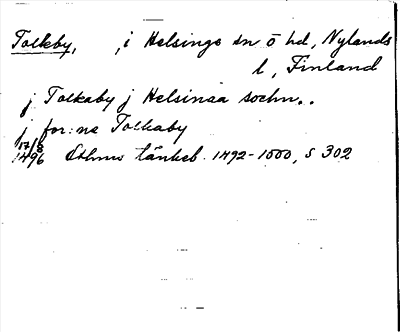 Tolkby, , i Helsinge sn Ö hd, Nylands
l, Finland
j Tolkaby j Helsinga sochn..
j for:ne Tolkaby
17/8
1496 Ethms tänkeb. 1492-1500, s 302